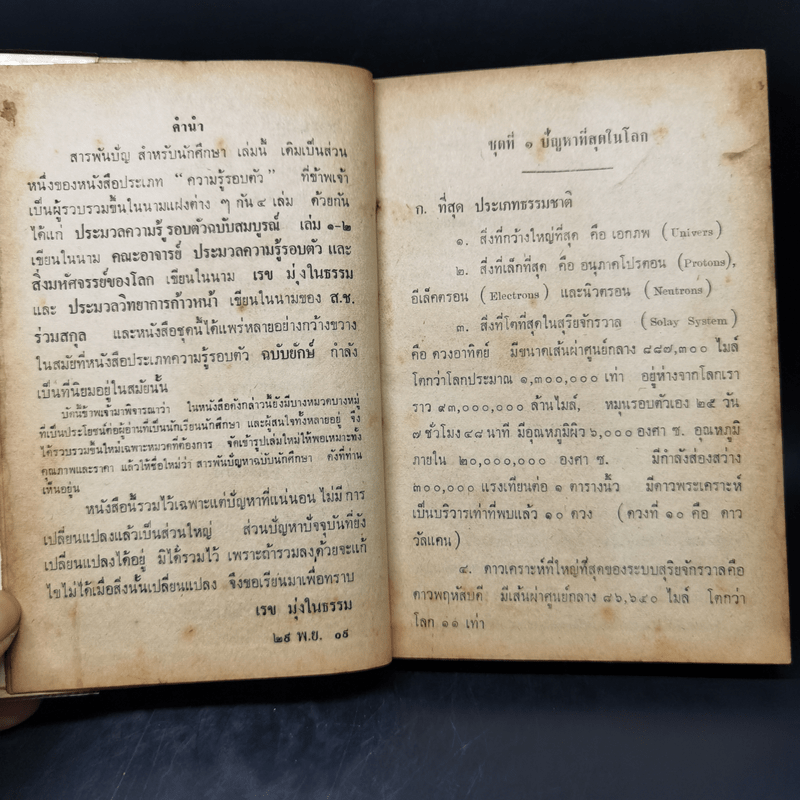 คำนำ
สารพันปัญ สำหรับนักศึกษา เล่มนี้ เดิมเป็นส่วน
หนึ่งของหนังสือประเภท “ ความรู้รอบตัว ” ที่ข้าพเจ้า
เป็นผู้รวบรวมขึ้นในนามแฝงต่าง ๆ กัน ๔ เล่ม ด้วยกัน
ได้แก่ ประมวลความรู้รอบตัวฉบับสมบูรณ์ เล่ม ๑-๒
เขียนในนาม คณะอาจารย์ ประมวลความรู้รอบตัว และ
สิ่งมหัศจรรย์ของโลก เขียนในนาม เรข มุ่งในธรรม
และ ประมวลวิทยาการก้าวหน้า เขียนในนามของ ส.ช.
ร่วมสกุล และหนังสือชุดนี้ได้แพร่หลายอย่างกว้างขวาง
ในสมัยที่หนังสือประเภทความรู้รอบตัว ฉบับยักษ์ กำลัง
เป็นที่นิยมอยู่ในสมัยนั้น
บัดนี้ข้าพเจ้ามาพิจารณาว่า ในหนังสือดังกล่าวนี้ยังมีบางหมวดบางหมู่
ที่เป็นประโยชน์ต่อผู้อ่านที่เป็นนักเรียนนักศึกษา และผู้สนใจทั้งหลายอยู่ จึง
ได้รวบรวมขึ้นใหม่เฉพาะหมวดที่ต้องการ จัดเข้ารูปเล่มใหม่ให้พอเหมาะทั้ง
คุณภาพและราคา แล้วให้ชื่อใหม่ว่า สารพันปัญหาฉบับนักศึกษา ดังที่ท่าน
เห็นอยู่น
หนังสือนี้รวมไว้เฉพาะแต่ปัญหาที่แน่นอน ไม่มีการ
เปลี่ยนแปลงแล้วเป็นส่วนใหญ่ ส่วนปัญหาปัจจุบันที่ยัง
เปลี่ยนแปลงได้อยู่ มิได้รวมไว้ เพราะถ้ารวมลงด้วยจะแก้
ไขไม่ได้เมื่อสิ่งนั้นเปลี่ยนแปลง จึงขอเรียนมาเพื่อทราบ
เรข มุ่งในธรรม
๒๙ พ.ย. ๑๙
ชุดที่ ๑ ปัญหาที่สุดในโลก
ก. ที่สุด ประเภทธรรมชาติ
๑. สิ่งที่กว้างใหญ่ที่สุด คือ เอกภพ (Univers)
๒. สิ่งที่เล็กที่สุด คือ อนุภาคโปรตอน (Protons),
อีเล็คตรอน (Electrons) และนิวตรอน (Neutrons)
๓. สิ่งที่โตที่สุดในสุริยจักรวาล (Solay System)
คือ ดวงอาทิตย์ มีขนาดเส้นผ่าศูนย์กลาง ๘๘๗,๓๐๐ ไมล์
โตกว่าโลกประมาณ ๑,๓๐๐,๐๐๐ เท่า อยู่ห่างจากโลกเรา
ราว ๙๓,๐๐๐,๐๐๐ ล้านไมล์, หมุนรอบตัวเอง ๒๕ วัน
๗ ชั่วโมง ๔๘ นาที มีอุณหภูมิผิว ๖,๐๐๐ องศา ซ. อุณหภูมิ
ภายใน ๒๐,๐๐๐,๐๐๐ องศา ซ. มีกำลังส่องสว่าง
๓๐๐,๐๐๐ แรงเทียนต่อ ๑ ตารางนิ้ว มีดาวพระเคราะห์
เป็นบริวารเท่าที่พบแล้ว ๑๐ ดวง (ดวงที่ ๑๐ คือ ดาว
วัลแคน)
๔. ดาวเคราะห์ที่ใหญ่ที่สุดของระบบสุริยจักรวาลคือ
ดาวพฤหัสบดี มีเส้นผ่าศูนย์กลาง ๘๖,๖๔๐ ไมล์ โตกว่า
โลก ๑๑ เท่า